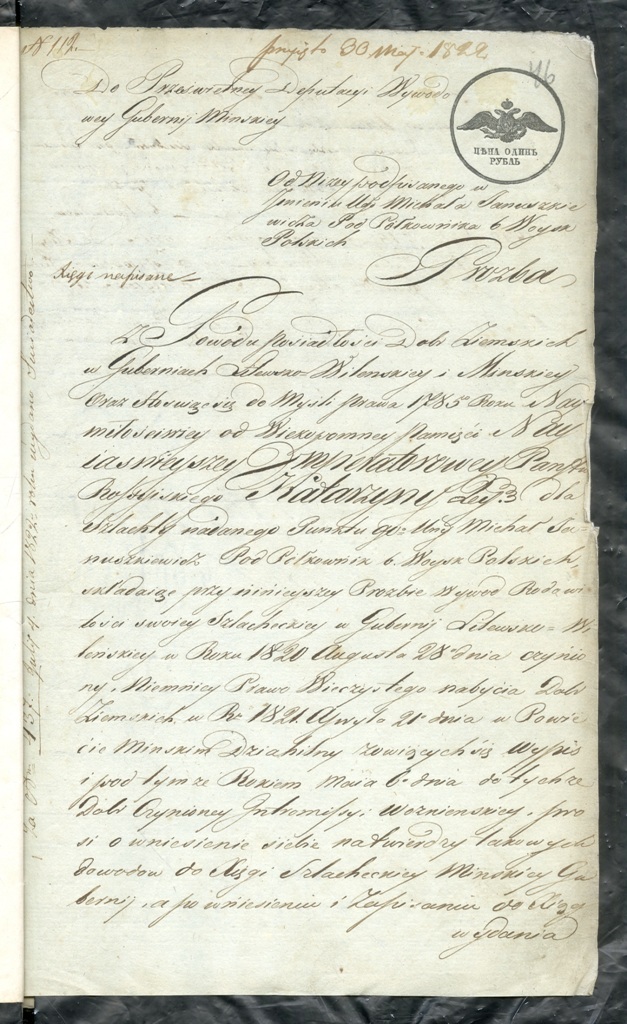 N 112.
przyięto 30 Maja 1822
46
Do Prześwietney Deputacyi Wywodo
wey Gubernij Minskiey
ЦѢНА ОДИНЪ
РУБЛЬ
Od Niżey podpisanego w
Imieniu Ur. Michała Januszkie
wicza Pod Półkownika b. Woysk
Polskich
Prozba
Z Powodu Posiadłości Dobr Ziemskich
w Guberniach Litewsko-Wilenskiey i Minskiey
Oraz Stosuiąc się do Myśli prawa 1785º Roku Nay
miłościwiey od Wiekopomney Pamięci Nay
iaśnieyszey Imperatorowey Pani
Rossyiskiego Katarzyny Legiey dla
Szlachty nadanego Punktu go Ury Michał Ja-
nuszkiewicz Pod Półkownik b. Woysk Polskich,
składaiąc przy ninieyszey Prozbie Wywod Rodowi
tości swoiey Szlacheckiey w Gubernij Litewsko-Wi
leńskiey w Roku 1820 Augusta 28 dnia czynio
ny, Niemniey Prawo Wieczystego nabycia Dobr
Ziemskich w Rº 1821 Apryla 21 dnia w Powie
cie Minskim Działiliny zowiących się wypis
i pod tymże Rokiem Maia 6 dnia do tychże
Dobr Czynioney Intromissyi Woznienskiey, pro
si o wniesienie siebie na twierdzy takowych
dowodow do Xięgi Szlacheckiey Minskiey Gu
bernij, a po wniesieniu i Zapisaniu do Xiąg
wydania